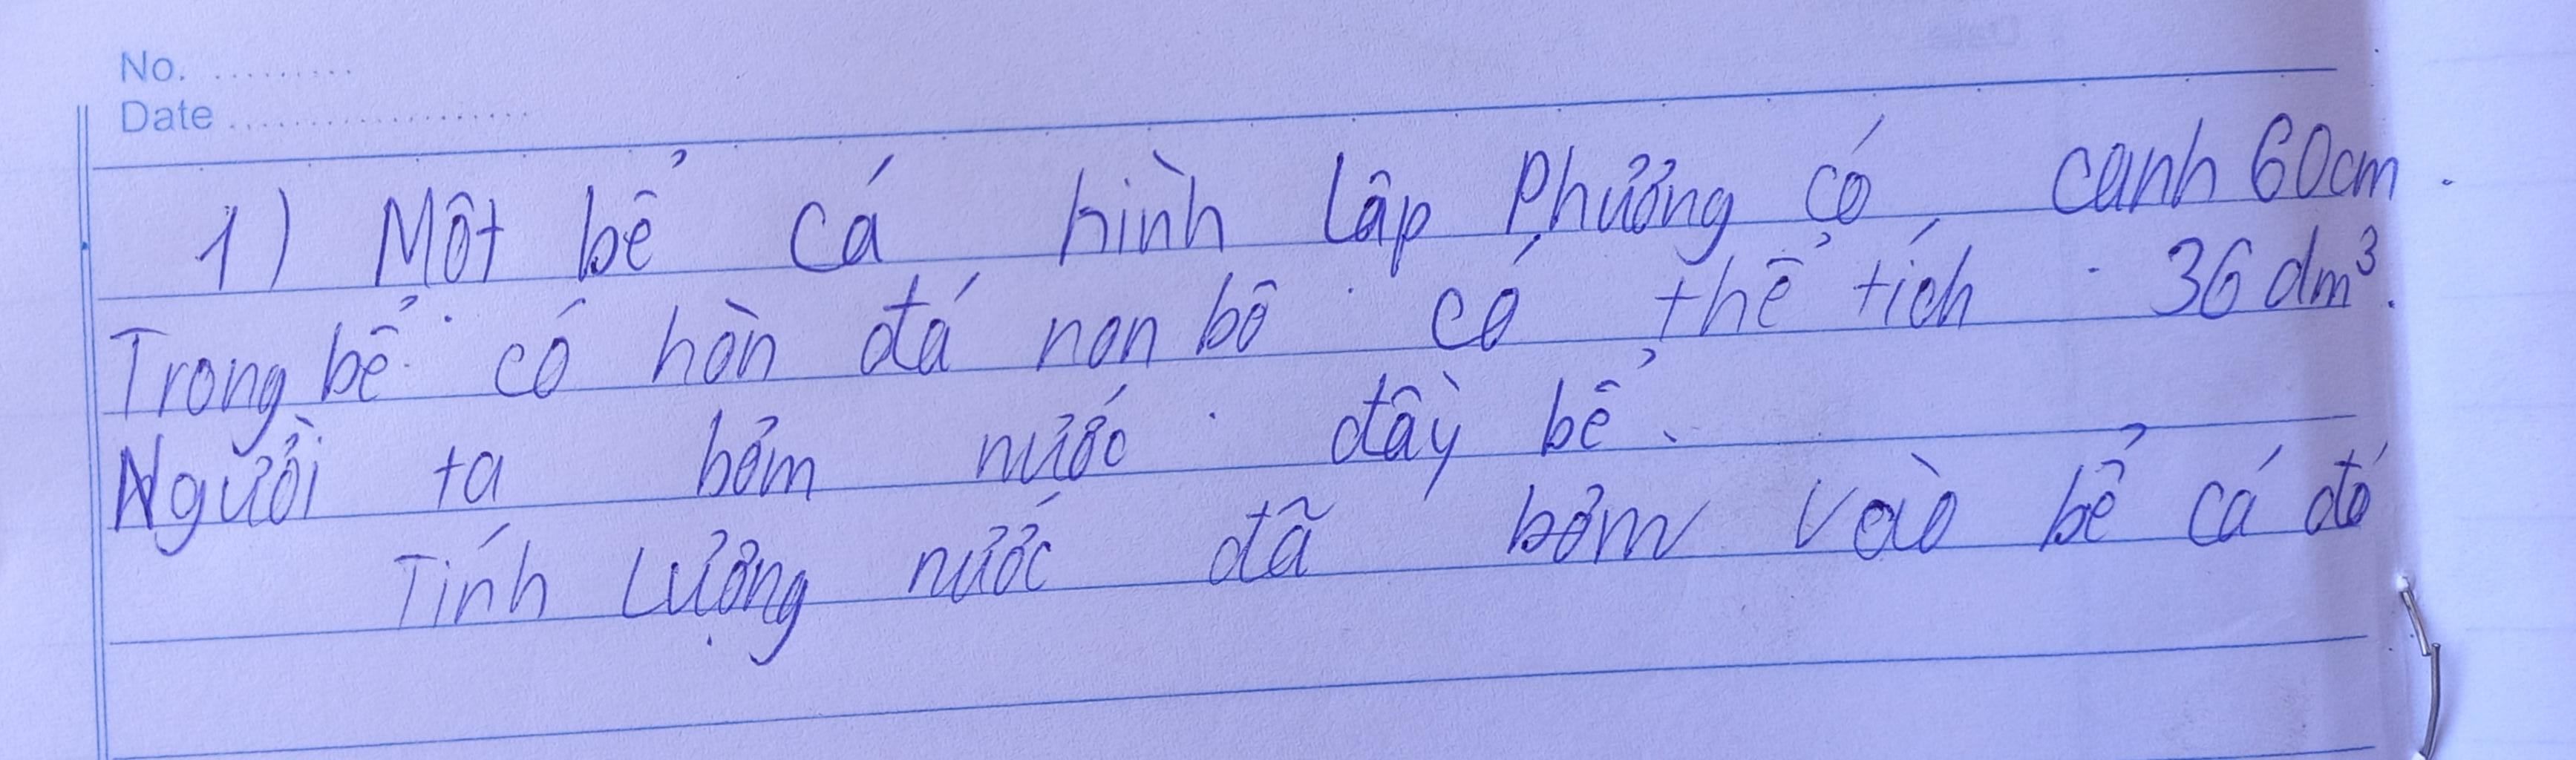 No. .........
Date ...................
1) Một bể cá hình lập phương có cạnh 60cm.
Trong bể có hòn đá non bộ có thể tích 36 dm³.
Người ta bơm nước đầy bể.
Tính lượng nước đã bơm vào bể cá đó